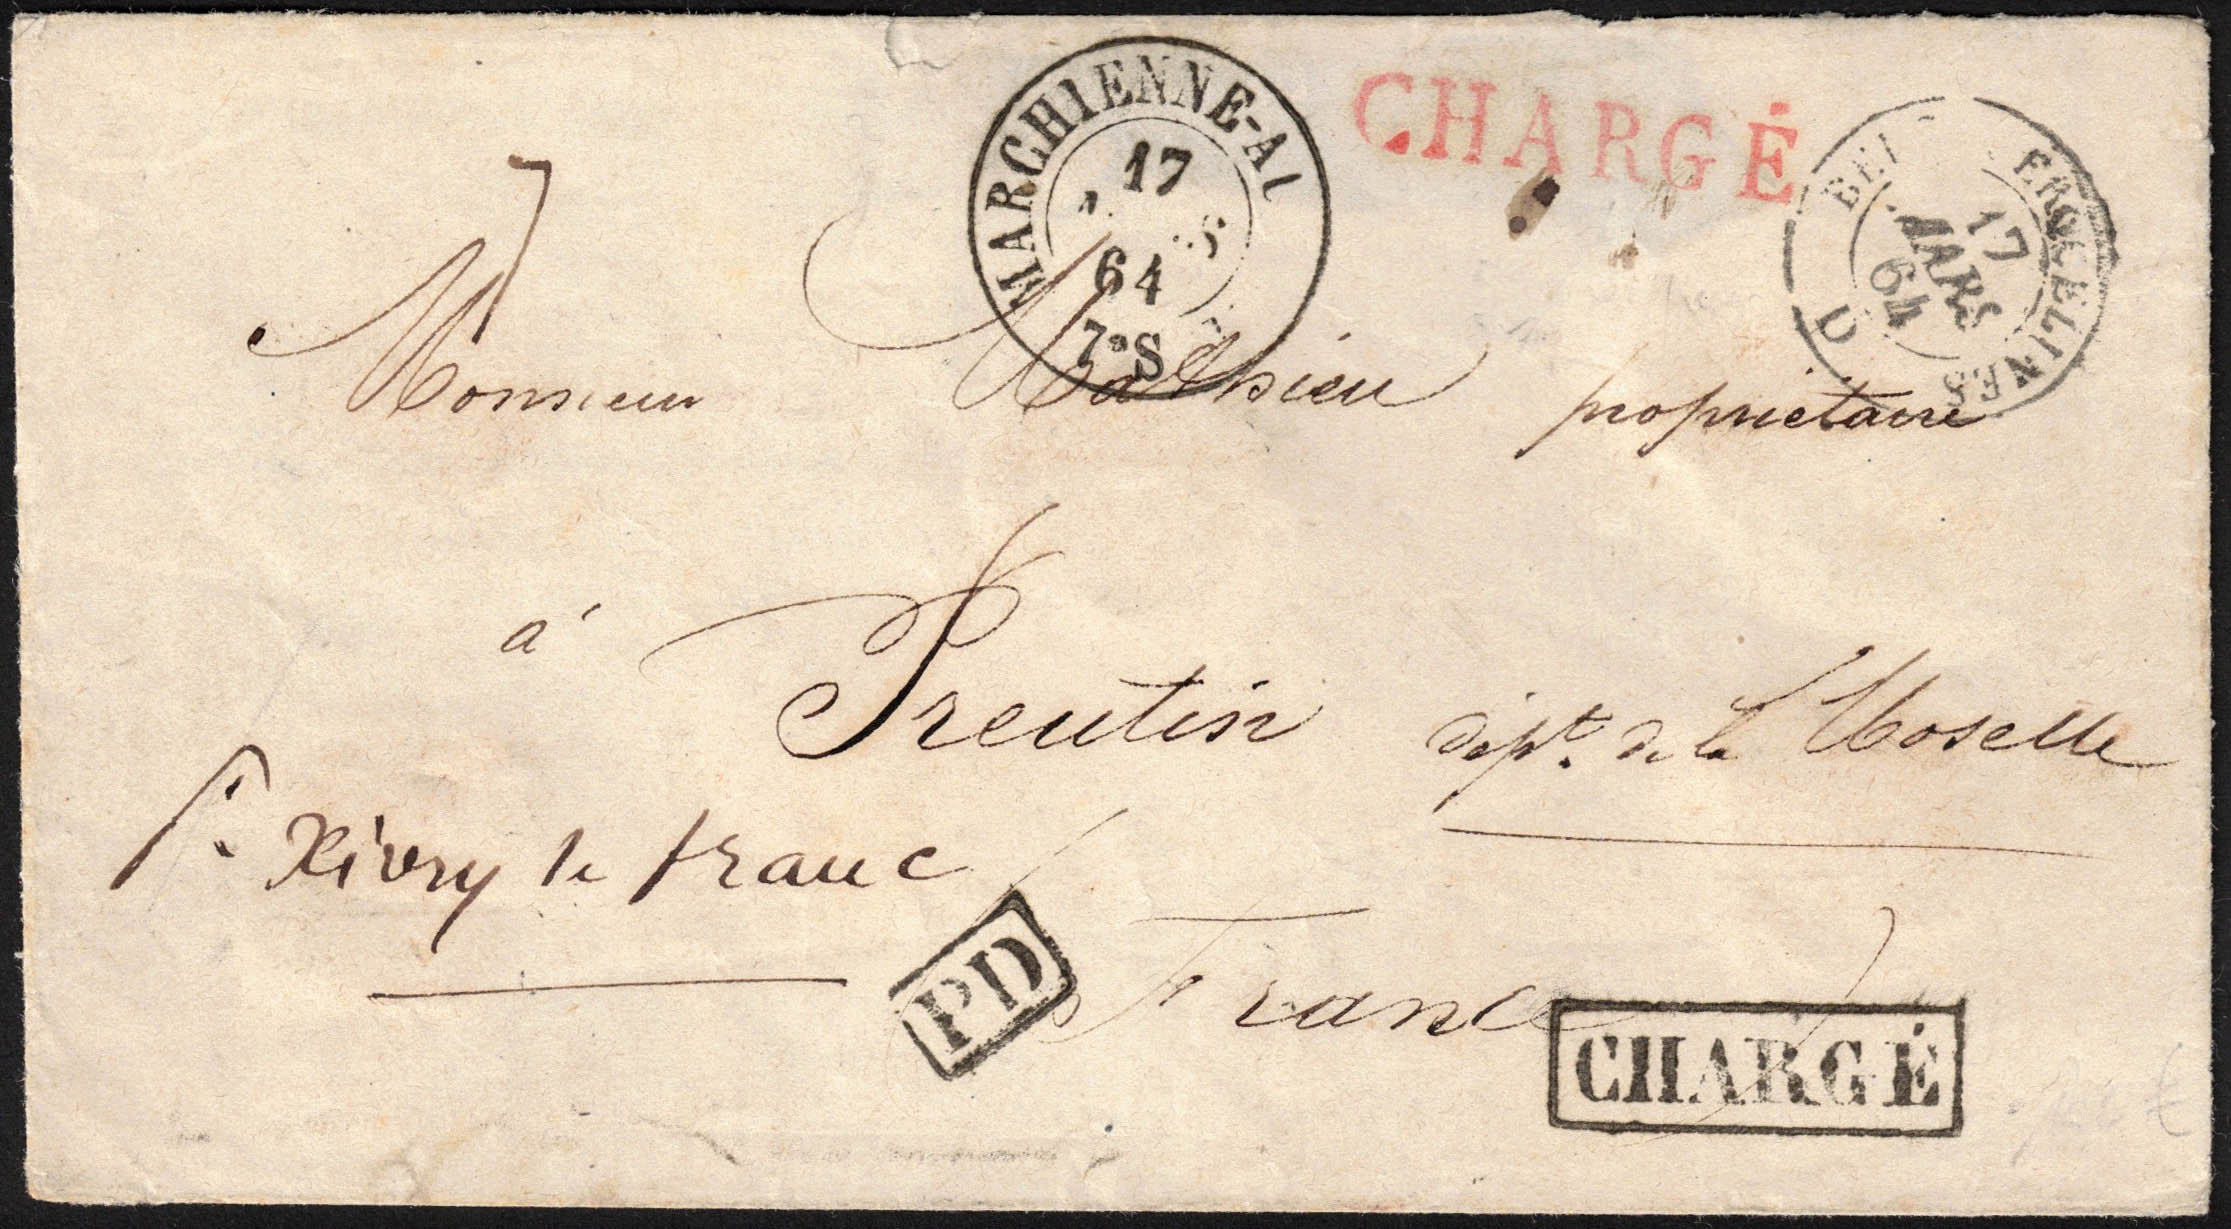 MARCHIENNE-AU
17
64
7•S
CHARGÉ
BEL
ERQUELINES
17
MARS
64
D
7
Monsieur Mathieu propriétaire
à Preutin dépt. de la Moselle
pr. Xivry le franc
France
PD
CHARGÉ